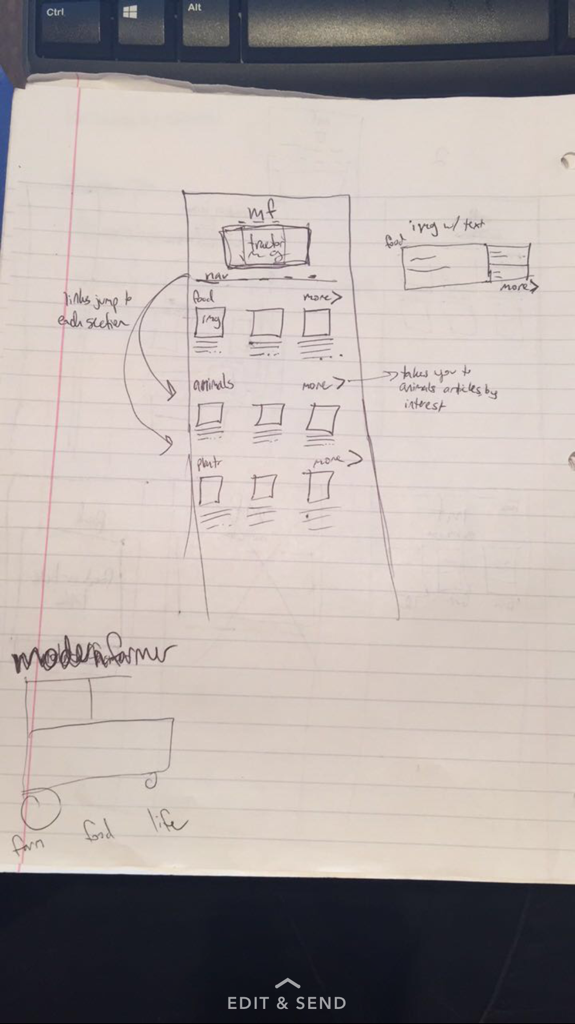 Ctrl
Alt
mf
tractor
nav
food
more>
img
links jump to
each section
animals
more>
takes you to
animals articles by
interest
more>
img w/ text
food
more>
modern farmer
farm food life
EDIT & SEND